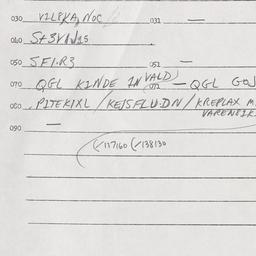 030 VILPKA, NOC 031 —
040 St3V1V15
050 SF1.R3 051 —
070 QGL KINDE INVALD) 071 — QGL GOJ
080 PITEKIXL / KEJSFLU.DN / KREPLAX M.
VARENEIK
090 —
(✓117160 (✓138130